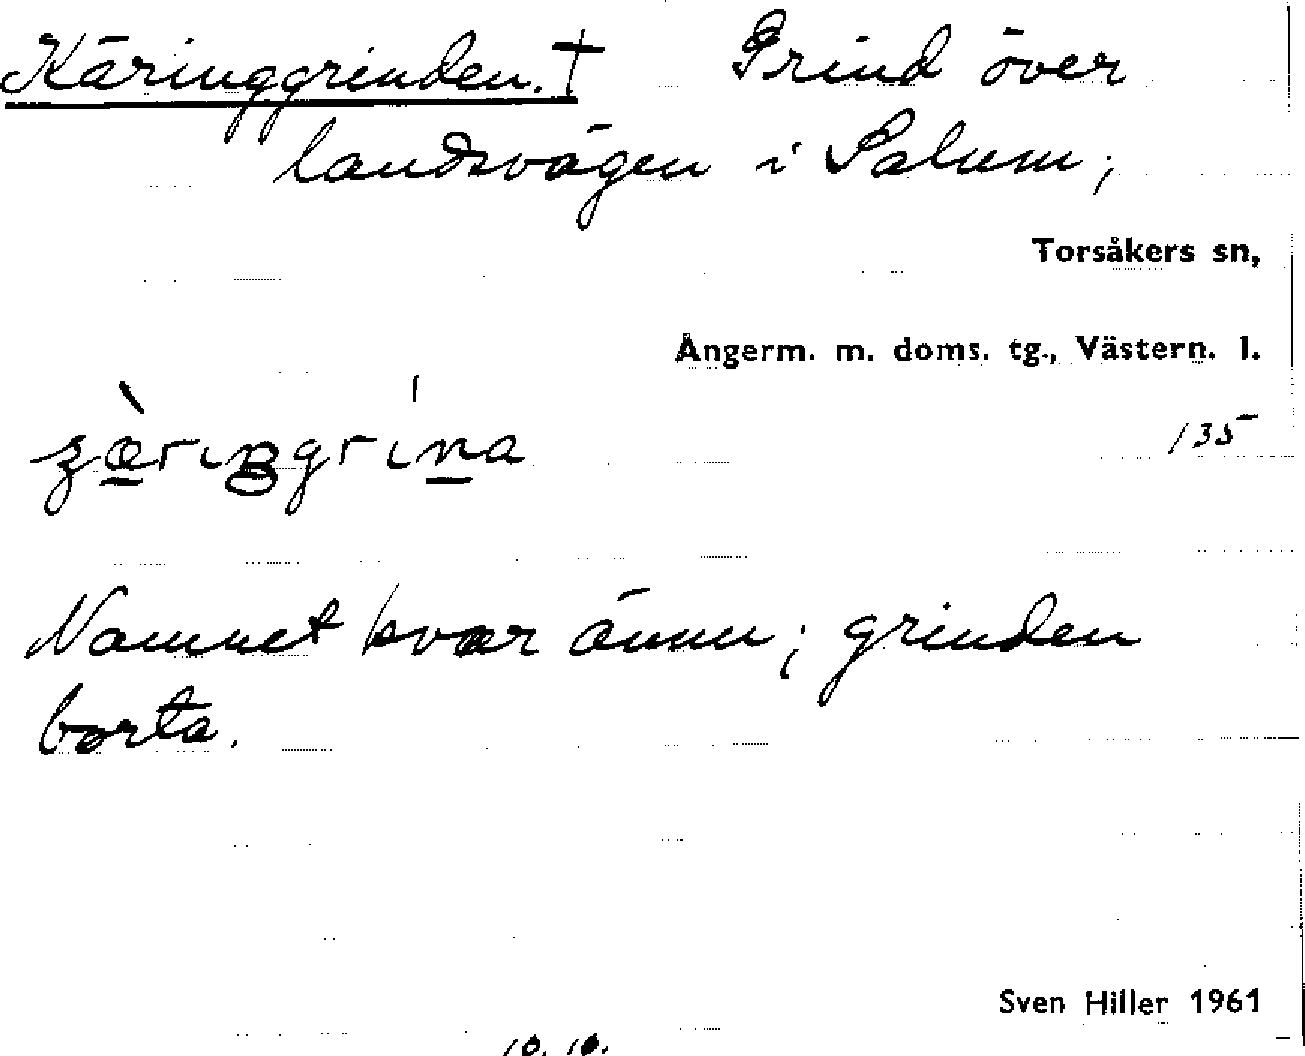 Käringgrinden. † Grind över
landsvägen i Salum;
Torsåkers sn,
Ångerm. m. doms. tg., Västern. l.
135
Namnet kvar ännu; grinden
borta.
Sven Hiller 1961
10. 10.